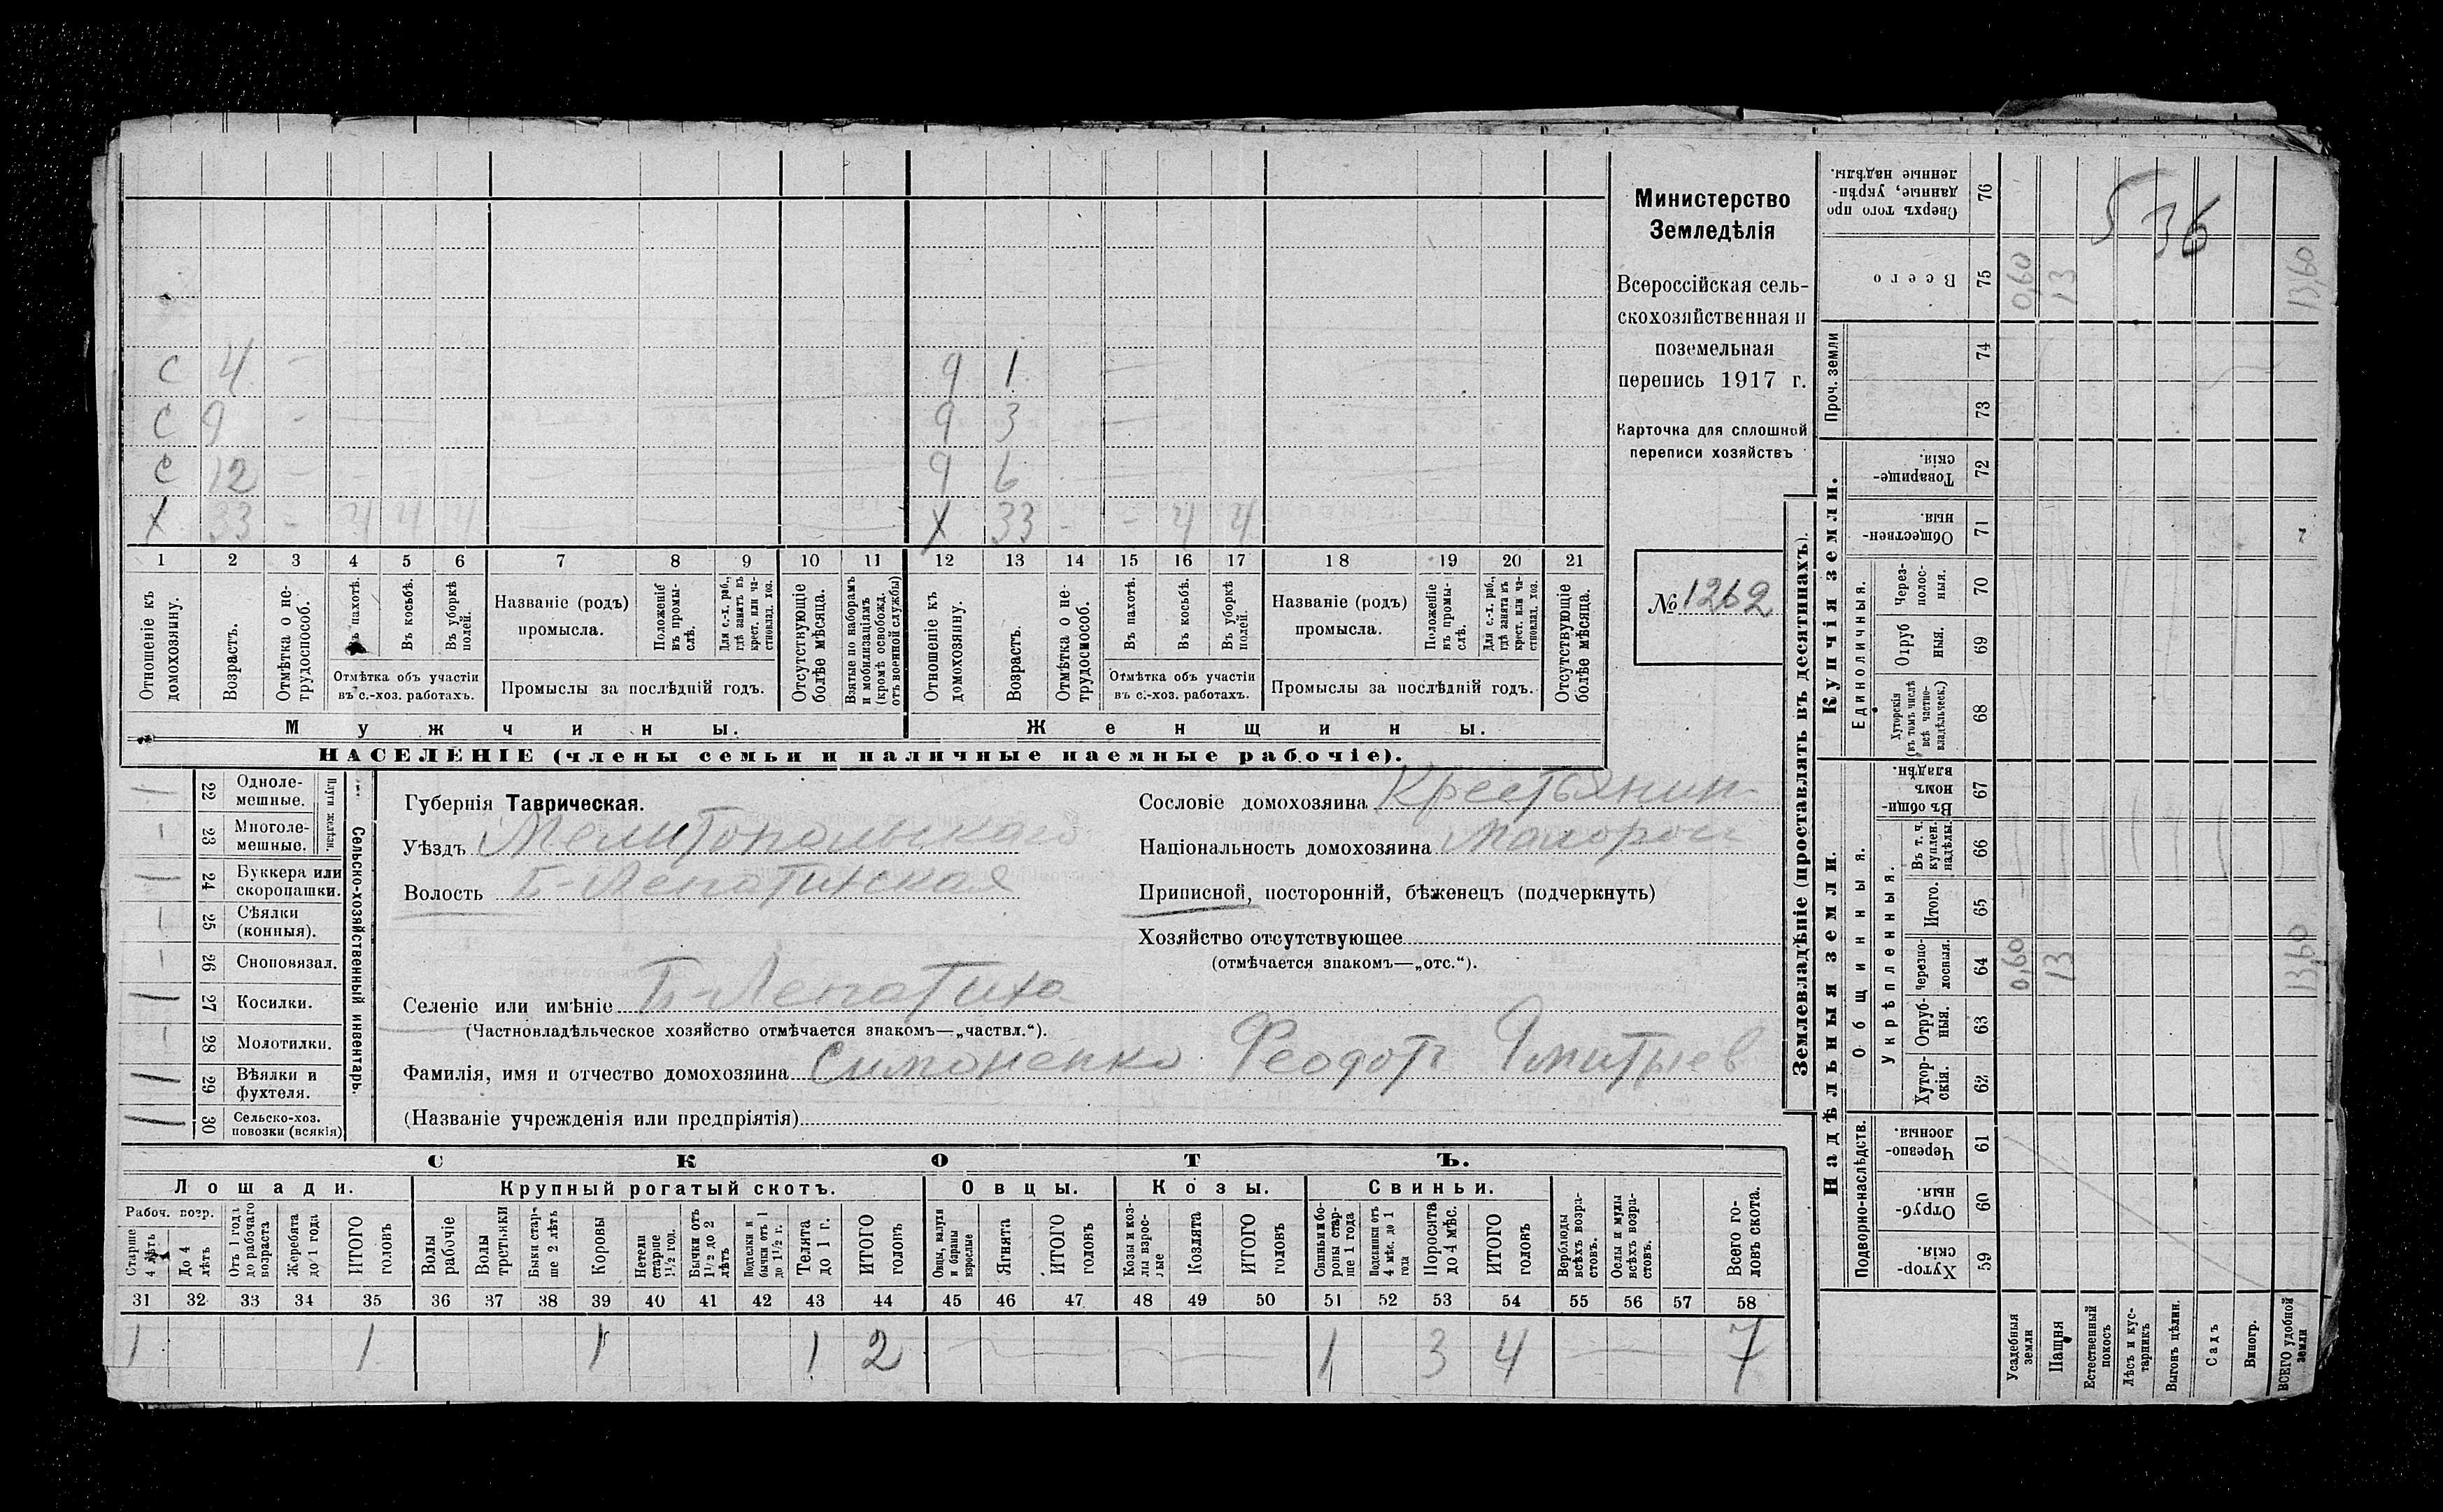 Министерство
Земледѣлія
Всероссійская сель-
скохозяйственная и
поземельная
перепись 1917 г.
Карточка для сплошной
переписи хозяйствъ
№ 1262
536
С 4 -
С 9 -
С 12 -
Х 33 - ч ч ч
9 1
9 3
9 6
Х 33 - - ч ч
1 2 3 4 5 6 7 8 9 10 11 12 13 14 15 16 17 18 19 20 21
Отношеніе къ домохозяину.
Возрастъ.
Отмѣтка о не-трудоспособ.
Въ пахотѣ.
Въ косьбѣ.
Въ уборкѣ полей.
Отмѣтка объ участіи въ с.-хоз. работахъ.
Названіе (родъ) промысла.
Положеніе въ промы-слѣ.
Для с.-х. раб., гдѣ занятъ въ крест. или ча-стновлад. хоз.
Промыслы за послѣдній годъ.
Отсутствующіе болѣе мѣсяца.
Взятые по наборамъ и мобилизаціямъ (кромѣ освобожд. отъ военной службы)
Отношеніе къ домохозяину.
Возрастъ.
Отмѣтка о не-трудоспособ.
Въ пахотѣ.
Въ косьбѣ.
Въ уборкѣ полей.
Отмѣтка объ участіи въ с.-хоз. работахъ.
Названіе (родъ) промысла.
Положеніе въ промы-слѣ.
Для с.-х. раб., гдѣ занята въ крест. или ча-стновлад. хоз.
Промыслы за послѣдній годъ.
Отсутствующіе болѣе мѣсяца.
Мужчины.
Женщины.
НАСЕЛЕНІЕ (члены семьи и наличные наемные рабочіе).
22 Одноле-мешные.
23 Многоле-мешные.
Плуги желѣзн.
24 Буккера или скоропашки.
25 Сѣялки (конныя).
26 Сноповязал.
27 Косилки.
28 Молотилки.
29 Вѣялки и фухтеля.
30 Сельско-хоз. повозки (всякія)
Сельско-хозяйственный инвентарь.
Губернія Таврическая.
Уѣздъ Мелитопольскаго
Волость Б-Лепатихская
Селеніе или имѣніе Б-Лепатиха
(Частновладѣльческое хозяйство отмѣчается знакомъ—„частвл.“).
Фамилія, имя и отчество домохозяина Симоненко Феодотъ Дмитріев
(Названіе учрежденія или предпріятія)
Сословіе домохозяина Крестьянин
Національность домохозяина малорос
Приписной, посторонній, бѣженецъ (подчеркнуть)
Хозяйство отсутствующее
(отмѣчается знакомъ—„отс.“).
СКОТЪ.
Лошади.
Крупный рогатый скотъ.
Овцы.
Козы.
Свиньи.
Рабоч. возр.
Старше 4 лѣтъ
До 4 лѣтъ
Отъ 1 года до рабочаго возраста
Жеребята до 1 года
ИТОГО головъ
Волы рабочіе
Волы третьяки
Быки стар-ше 2 лѣтъ
Коровы
Нетели старше 1½ год.
Бычки отъ 1½ до 2 лѣтъ
Подтелки и бычки отъ 1 до 1½ г.
Телята до 1 г.
ИТОГО головъ
Овцы, валухи и бараны взрослые
Ягнята
ИТОГО головъ
Козы и коз-лы взрос-лые
Козлята
ИТОГО головъ
Свиньи и бо-ровы стар-ше 1 года
Подсвинки отъ 4 мѣс. до 1 года
Поросята до 4 мѣс.
ИТОГО головъ
Верблюды всѣхъ возра-стовъ.
Ослы и мулы всѣхъ возра-стовъ.
Всего го-ловъ скота.
31 32 33 34 35 36 37 38 39 40 41 42 43 44 45 46 47 48 49 50 51 52 53 54 55 56 57 58
1 1 1 1 2 1 3 4 7
Землевладѣніе (проставлять въ десятинахъ).
Купчія земли.
Надѣльныя земли.
Проч. земли
Единоличныя.
Общинныя.
Укрѣпленныя.
Подворно-наслѣдств.
76 Сверхъ того про-данные, укрѣп-ленные надѣлы.
75 Всего 0,60 13 13,60
74
73
72 Товарище-скія.
71 Обществен-ныя.
70 Через-полос-ныя.
69 Отруб-ныя.
68 Хуторскія (въ томъ числѣ всѣ частно-владѣльческ.)
67 Въ общин-номъ владѣн.
66 Въ т. ч. куплен. надѣлы.
65 Итого.
64 Черезпо-лосныя. 0,60 13 13,60
63 Отруб-ныя.
62 Хутор-скія.
61 Черезпо-лосныя.
60 Отруб-ныя.
59 Хутор-скія.
Усадебныя земли
Пашня
Естественный покосъ
Лѣсъ и кус-тарникъ
Выгонъ цѣлин.
Садъ
Виногр.
ВСЕГО удобной земли